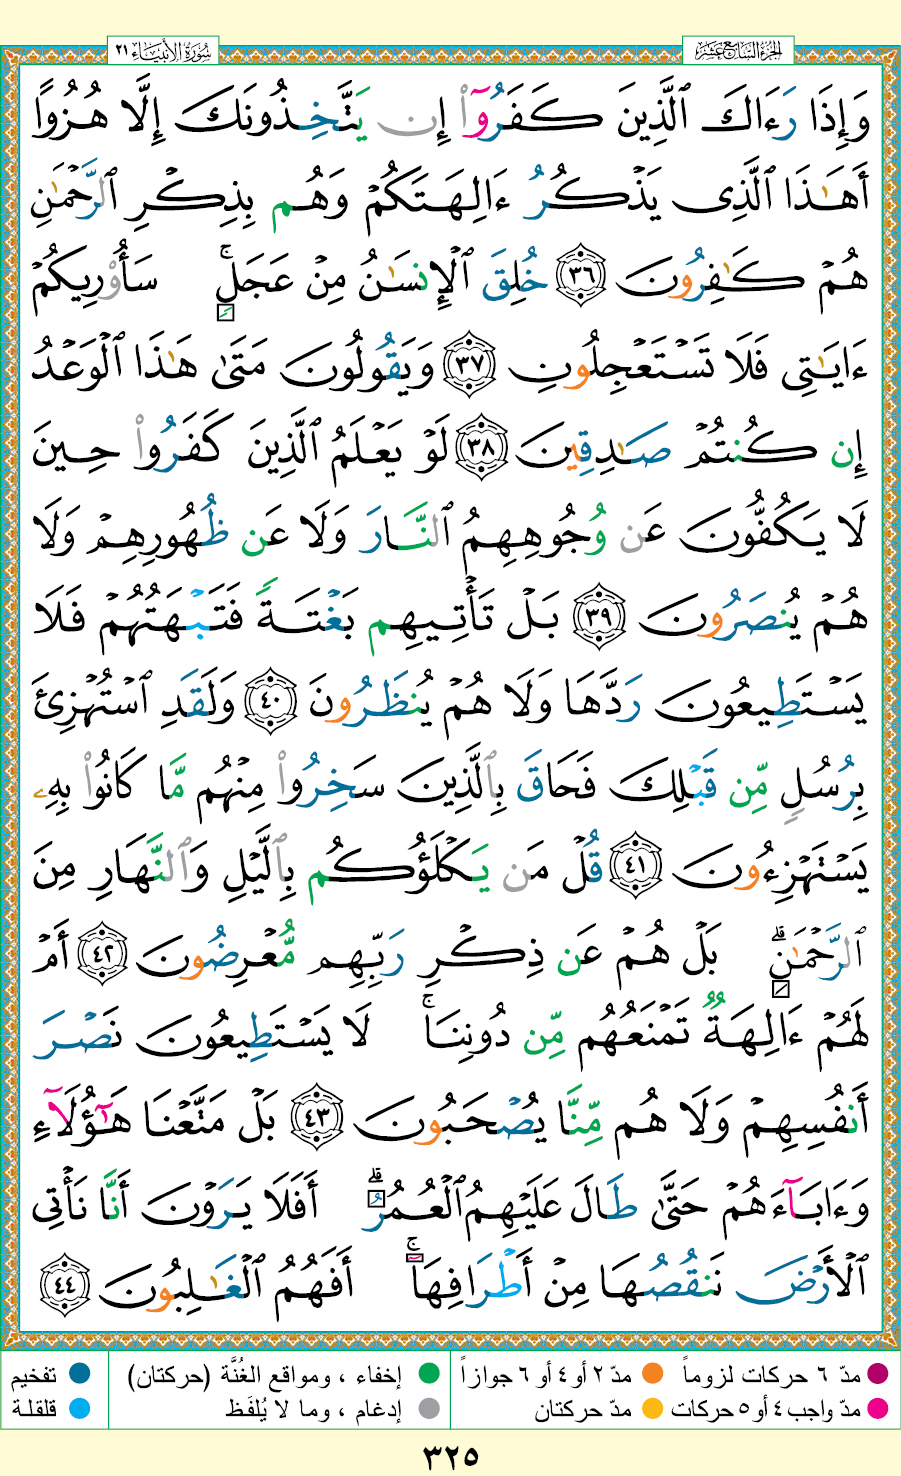 سُورَةُ الأَنبيَاء ٢١
الجزء السابع عشر
وَإِذَا رَءَاكَ ٱلَّذِينَ كَفَرُوٓا۟ إِن يَتَّخِذُونَكَ إِلَّا هُزُوًا
أَهَـٰذَا ٱلَّذِى يَذْكُرُ ءَالِهَتَكُمْ وَهُم بِذِكْرِ ٱلرَّحْمَـٰنِ
هُمْ كَـٰفِرُونَ ٣٦ خُلِقَ ٱلْإِنسَـٰنُ مِنْ عَجَلٍۚ سَأُو۟رِيكُمْ
ءَايَـٰتِى فَلَا تَسْتَعْجِلُونِ ٣٧ وَيَقُولُونَ مَتَىٰ هَـٰذَا ٱلْوَعْدُ
إِن كُنتُمْ صَـٰدِقِينَ ٣٨ لَوْ يَعْلَمُ ٱلَّذِينَ كَفَرُوا۟ حِينَ
لَا يَكُفُّونَ عَن وُجُوهِهِمُ ٱلنَّارَ وَلَا عَن ظُهُورِهِمْ وَلَا
هُمْ يُنصَرُونَ ٣٩ بَلْ تَأْتِيهِم بَغْتَةً فَتَبْهَتُهُمْ فَلَا
يَسْتَطِيعُونَ رَدَّهَا وَلَا هُمْ يُنظَرُونَ ٤٠ وَلَقَدِ ٱسْتُهْزِئَ
بِرُسُلٍ مِّن قَبْلِكَ فَحَاقَ بِٱلَّذِينَ سَخِرُوا۟ مِنْهُم مَّا كَانُوا۟ بِهِۦ
يَسْتَهْزِءُونَ ٤١ قُلْ مَن يَكْلَؤُكُم بِٱلَّيْلِ وَٱلنَّهَارِ مِنَ
ٱلرَّحْمَـٰنِۗ بَلْ هُمْ عَن ذِكْرِ رَبِّهِم مُّعْرِضُونَ ٤٢ أَمْ
لَهُمْ ءَالِهَةٌ تَمْنَعُهُم مِّن دُونِنَاۚ لَا يَسْتَطِيعُونَ نَصْرَ
أَنفُسِهِمْ وَلَا هُم مِّنَّا يُصْحَبُونَ ٤٣ بَلْ مَتَّعْنَا هَـٰٓؤُلَآءِ
وَءَابَآءَهُمْ حَتَّىٰ طَالَ عَلَيْهِمُ ٱلْعُمُرُۗ أَفَلَا يَرَوْنَ أَنَّا نَأْتِى
ٱلْأَرْضَ نَنقُصُهَا مِنْ أَطْرَافِهَآۚ أَفَهُمُ ٱلْغَـٰلِبُونَ ٤٤
مدّ ٦ حركات لزوماً مدّ ٢ أو ٤ أو ٦ جوازاً إخفاء ، ومواقع الغُنَّة (حركتان) تفخيم
مدّ واجب ٤ أو ٥ حركات مدّ حركتان إدغام ، وما لا يُلفَظ قلقلة
٣٢٥